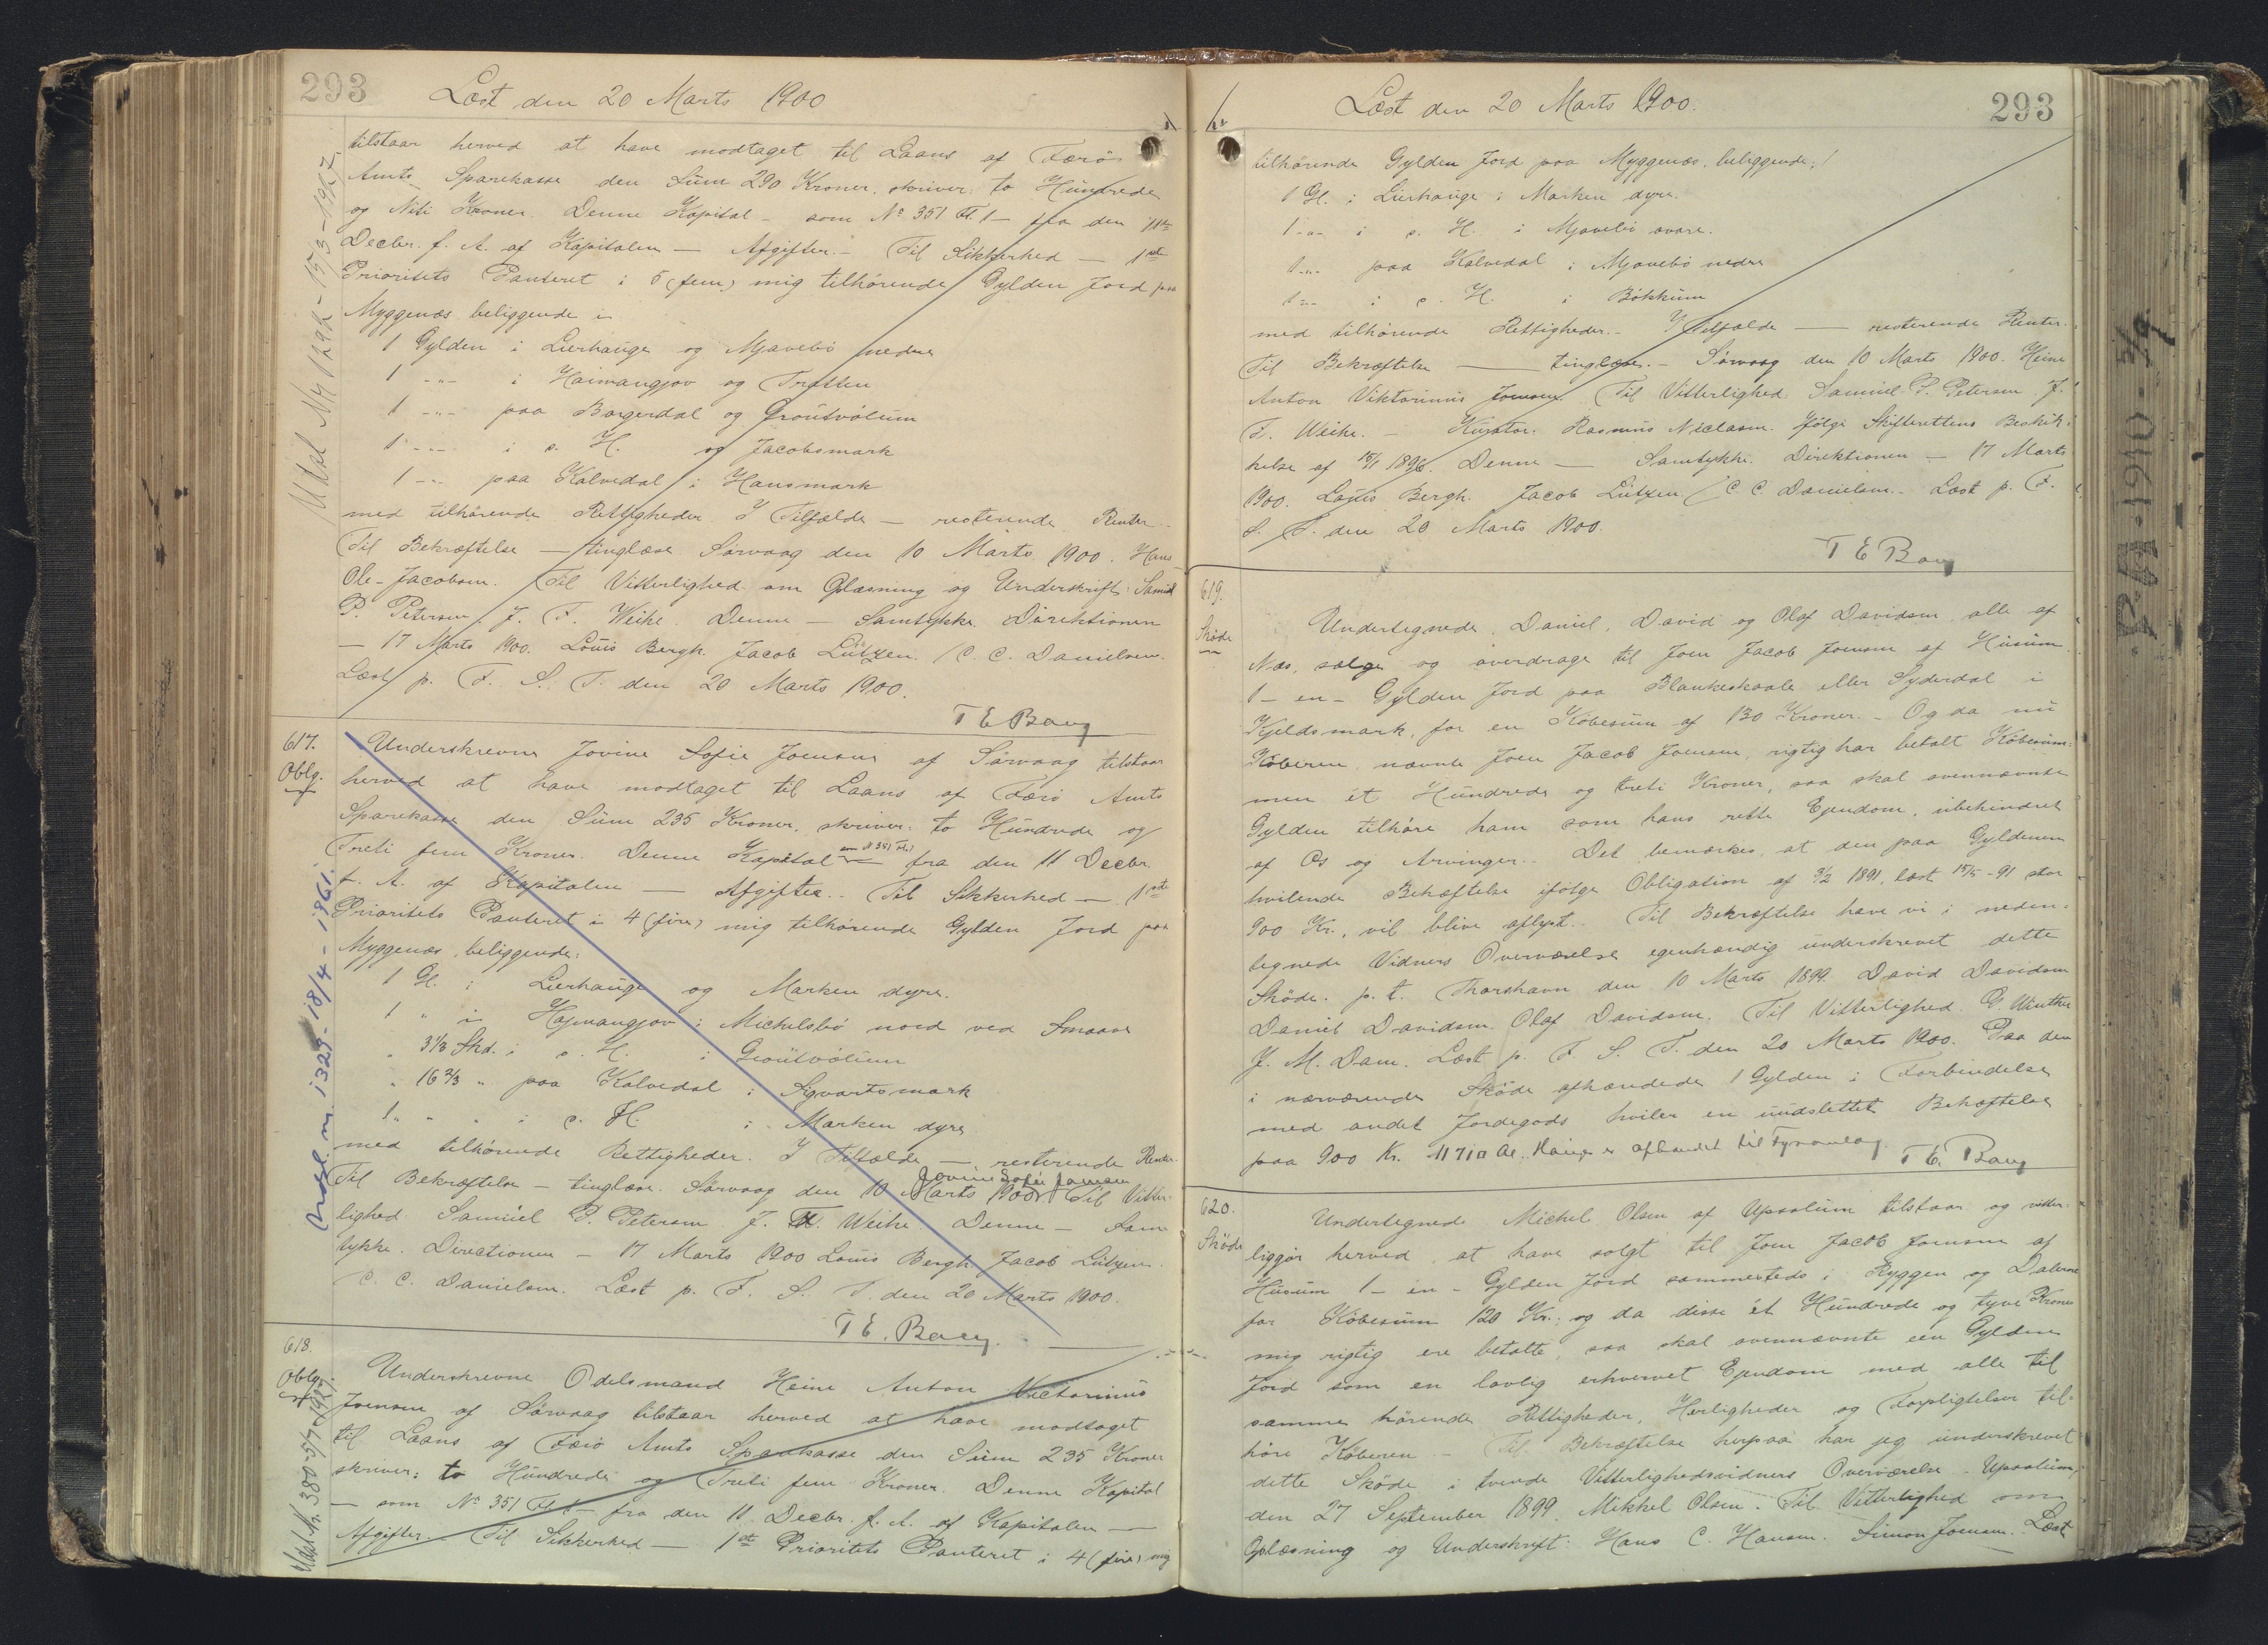 293
Læst den 20 Marts 1900
tilstaar herved at have modtaget til Laans af Færö
Amts Sparekasse den Sum 290 Kroner, skriver: to Hundrede
og Niti Kroner. Denne Kapital - som No 351 Fl. 1 - fra den 11te
Decbr. f. A. af Kapitalen - Afgifter. - Til Sikkerhed - 1ste
Prioritets Panteret i 5 (fem) mig tilhörende Gylden Jord paa
Myggenæs beliggende i
1 Gylden i Lierhauge og Mjavebö nedre
1 -"- i Haimangjov og Trötten
1 -"- paa Borgerdal og Groutvölum
1 -"- i s. H. og Jacobsmark
1 -"- paa Kalvedal i Hansmark
med tilhörende Rettigheder. I Tilfælde - resterende Renter.
Til Bekræftelse - tinglæse. Sörvaag den 10 Marts 1900. Hans
Ole Jacobsen. Til Vitterlighed om Oplæsning og Underskrift: Samuel
P. Petersen. J. F. Weihe. Denne - Samtykke. Direktionen
- 17 Marts 1900. Louis Bergh. Jacob Lützen. C. C. Danielsen.
Læst p. F. S. T. den 20 Marts 1900.
T E Bang
Udsl. Nr 1292 - 15/3 - 1927.
617.
Oblg.
Underskrevne Jovine Sofie Joensen af Sörvaag tilstaar
herved at have modtaget til Laans af Færö Amts
Sparekasse den Sum 235 Kroner, skriver: to Hundrede og
Treti fem Kroner. Denne Kapital som N 351 Fl. 1 - fra den 11 Decbr.
f. A. af Kapitalen - Afgifter. - Til Sikkerhed - 1ste
Prioritets Panteret i 4 (fire) mig tilhörende Gylden Jord paa
Myggenæs, beliggende:
1 Gl. i Lierhauge og Marken dyre.
1 " i Hajmangjov i Michelsbö nord ved Smaaer
" 3 1/3 Skd. i s. H. i Groütvölum
" 16 2/3 " paa Kalvedal i Sigvartsmark
1 " " i s. H. i Marken dyre
med tilhörende Rettigheder. I Tilfælde - resterende Renter.
Til Bekræftelse - tinglæse. Sörvaag den 10 Marts 1900. Jovine Sofie Joensen Til Vitter-
lighed Samüel P. Petersen. J. F. Weihe. Denne - Sam-
tykke. Directionen - 17 Marts 1900 Louis Bergh. Jacob Lützen.
C. C. Danielsen. Læst p. F. S. T. den 20 Marts 1900.
T E. Bang.
Udsl. nr. 1329 - 18/4 - 1961.
618.
Oblg.
Underskrevne Odelsmand Heine Anton Victorinus
Joensen af Sörvaag tilstaar herved at have modtaget
til Laans af Færö Amts Sparekasse den Süm 235 Kroner
skriver: to Hundrede og Treti fem Kroner. Denne Kapital
- som No 351 Fl. 1 - fra den 11. Decbr. f. A. af Kapitalen -
Afgifter. Til Sikkerhed - 1ste Prioritets Panteret i 4 (fire) mig
Udsl. Nr. 380 - 5/7 1927.
293
Læst den 20 Marts 1900.
tilhörende Gylden Jord paa Myggenæs, beliggende:
1 Gl. i Lierhauge i Marken dyre.
1 -"- i s. H. i Mjavebö övare.
1 -"- paa Kalvedal i Mjavebö nedre
1 -"- i s. H. i Bökkum
med tilhörende Rettigheder. - I Tilfælde - resterende Renter.
Til Bekræftelse - tinglæses. - Sörvaag den 10 Marts 1900. Heine
Anton Viktorinus Joensen. Til Vitterlighed Samuel P. Petersen J.
F. Weihe. - Kurator: Rasmus Niclasen. fölge Skifterettens Beskik-
kelse af 15/1 1896. Denne - Samtykke. Direktionen - 17 Marts
1900. Louis Bergh. Jacob Lützen / C. C. Danielsen. - Læst p. F.
S. T. den 20 Marts 1900.
T E Bang
619.
Sköde
Undertegnede, Daniel, David og Olaf Davidsen, alle af
Næs, sælge og overdrage til Joen Jacob Joensen af Husum
1 - en - Gylden Jord paa Blankeskaale eller Syderdal i
Kjeldsmark, for en Köbesum af 130 Kroner. - Og da nu
Köberen, nævnte Joen Jacob Joensen, rigtig har betalt Köbesum-
men ét Hundrede og treti Kroner, saa skal ovennævnte
Gylden tilhöre ham som hans rette Ejendom, ubehindret
af Os og Arvinger. - Det bemærkes, at den paa Gyldenen
hvilende Behæftelse ifölge Obligation af 3/2 1891, læst 15/5 - 91 stor
900 Kr., vil blive aflyst. - Til Bekræftelse have vi i neden-
tegnede Vidners Overværelse egenhændig underskrevet dette
Sköde. p. t. Thorshavn den 10 Marts 1899. David Davidsen
Daniel Davidsen. Olaf Davidsen. Til Vitterlighed. G. Winther
J. M. Dam. Læst p. F. S. T. den 20 Marts 1900. Paa den
i nærværende Sköde afhændede 1 Gylden i Forbindelse
med andet Jordegods hviler en uudslettet Behæftelse
paa 900 Kr. 11710 Al. Hauge er afhændet til Fyranlæg.
T E. Bang
620.
Sköde
Undertegnede Michel Olsen af Upsalum tilstaar og vitter-
liggör herved at have solgt til Joen Jacob Joensen af
Husum 1 - en - Gylden Jord sammesteds i Ryggen og Dalerne
for Köbesum 120 Kr.; og da disse ét Hundrede og tyve Kroner
mig rigtig ere betalte, saa skal ovennævnte een Gylden
Jord som en lovlig erhvervet Ejendom med alle til
samme hörende Rettigheder, Herligheder og Forpligtelser til-
höre Köberen - Til Bekræftelse herpaa har jeg underskrevet
dette Sköde i tvende Vitterlighedsvidners Overværelse. Upsalum,
den 27 September 1899. Mikkel Olsen. Til Vitterlighed om
Oplæsning og Underskrift: Hans C. Hansen. Simon Joensen. Læst